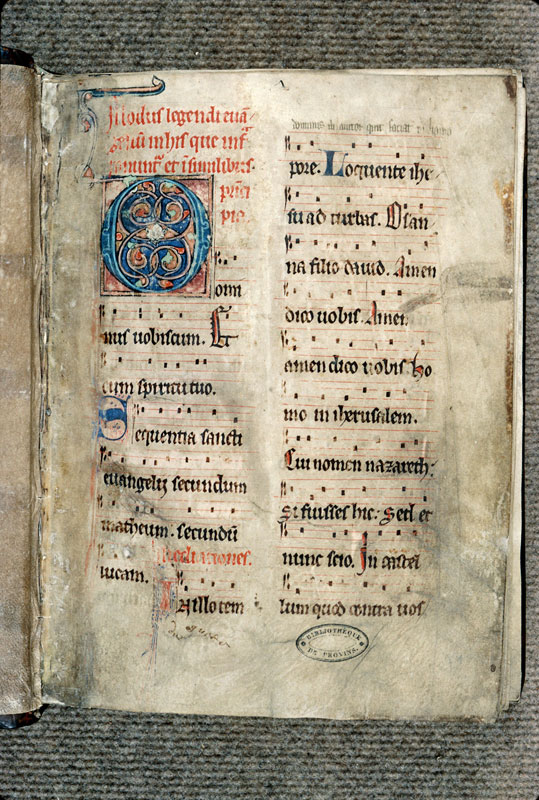 Modus legendi euã
geliũ in his que inf̃
et ĩ similibus.
prĩci
pio.
Dom
nus uobiscum. Et
cum spiritu tuo.
Sequentia sancti
euangelij secundum
matheum. secundũ
lucam.
In illo tem
pore. Loquente ihe
su ad turbas. Osan
na filio dauid. Amen
dico uobis. Amen
amen dico uobis. ho
mo in iherusalem.
Cui nomen nazareth.
Si fuisses hic. Sed et
nunc scio. In castel
lum quod contra uos
BIBLIOTHEQUE
DE PROVINS.